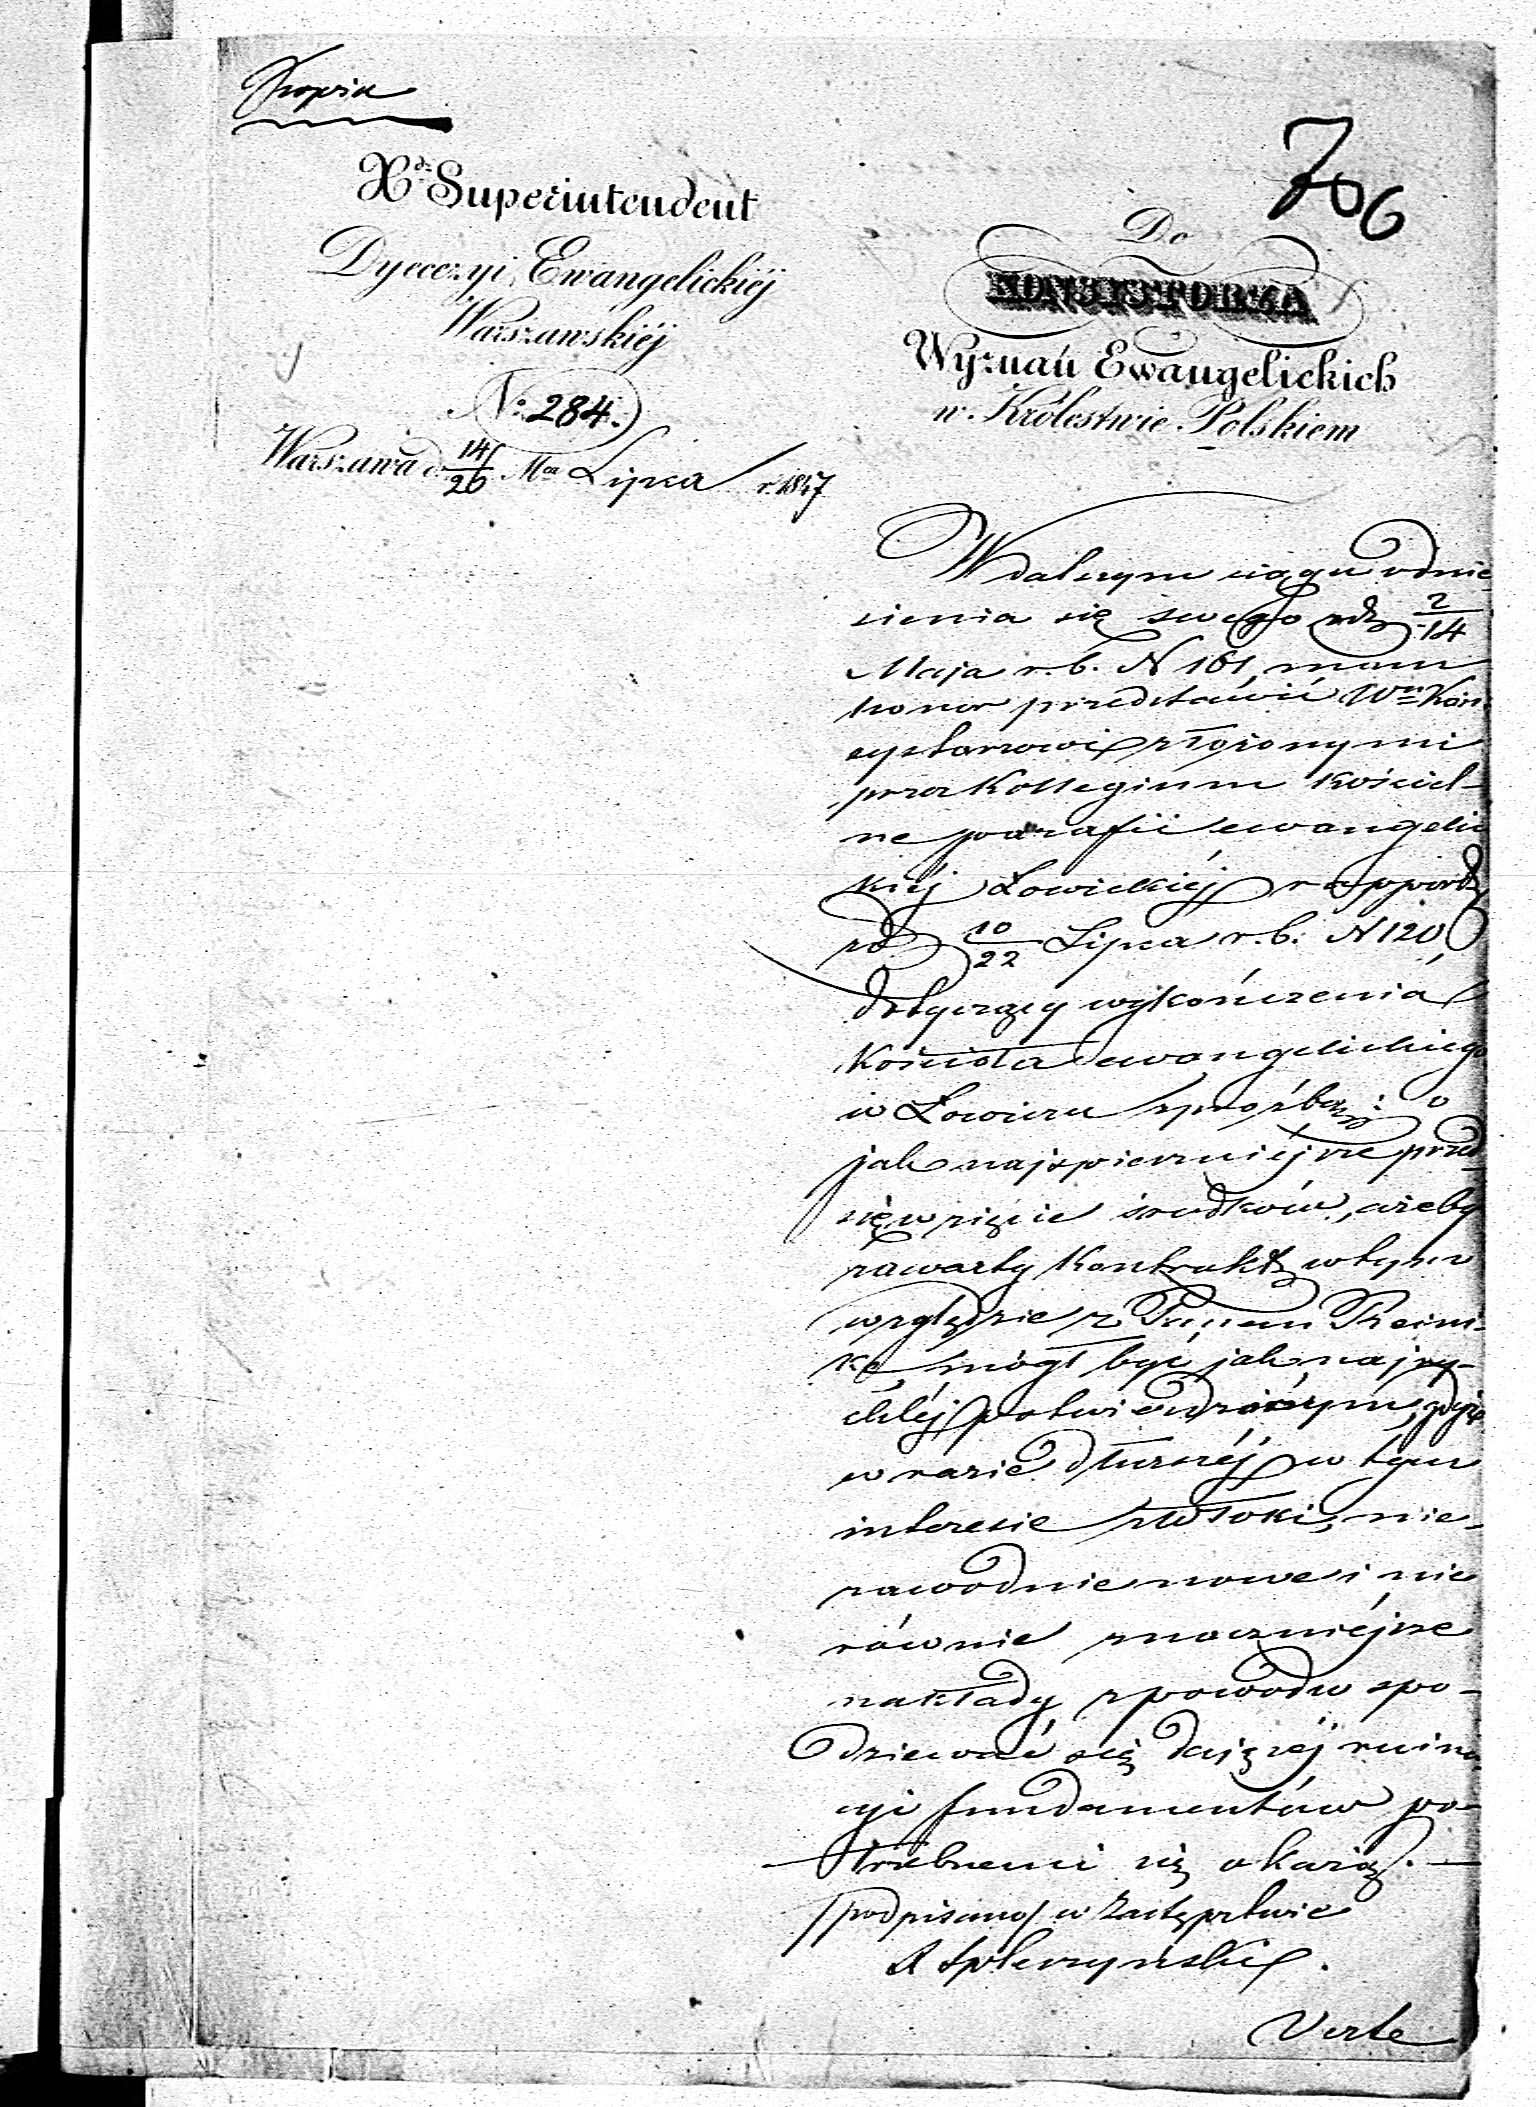 Kopia
706
Xdz Superintendent
Dyecezyi Ewangelickiéj
Warszawskiéj
No. 284.
Warszawa d. 14/26 Mca Lipca r. 1847
Do
KONSYSTORZA
Wyznań Ewangelickich
w Królestwie Polskiem
W dalszym ciągu odnie-
sienia się swego z d. 2/14
Maja r. b. N 161, mam
honor przedstawić Wmu Kon-
systorzowi złożony mi
przez Kollegium Kościel-
ne parafii ewangelic
kiéj Łowickiéj rapport
z d. 10/22 Lipca r. b. N 120
dotyczący wykończenia
Kościoła ewangelickiego
w Łowiczu z prośbą: o
jak najspieszniéjsze przed-
sięwzięcie środków, ażeby
zawarty Kontrakt w tym
względzie z Panem
mógł być jak najry-
chléj potwierdzonym, gdyż
w razie dłuższéj w tym
interesie zwłoki, nie-
zawodnie nowe i nie
równie znaczniéjsze
nakłady z powodu spo-
dziewać się dającéj ruina
cyi fundamentów po-
trzebnemi się okażą. —
/podpisano/ w Zastępstwie
Verte